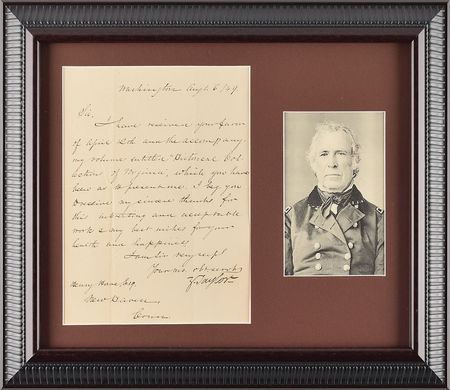 Washington Augt. 6/49.
Sir,
I have received your favor
of April 20th and the accompany-
ing volume entitled "Historical Col-
lection of Virginia, which you have
been so to present me. I beg you
to receive my sincere thanks for
this interesting and acceptable
work & my best wishes for your
health and happiness
I am Sir very respy
Your mo. obt. servt
Z. Taylor
Henry Howe, Esq.
New Haven
Conn